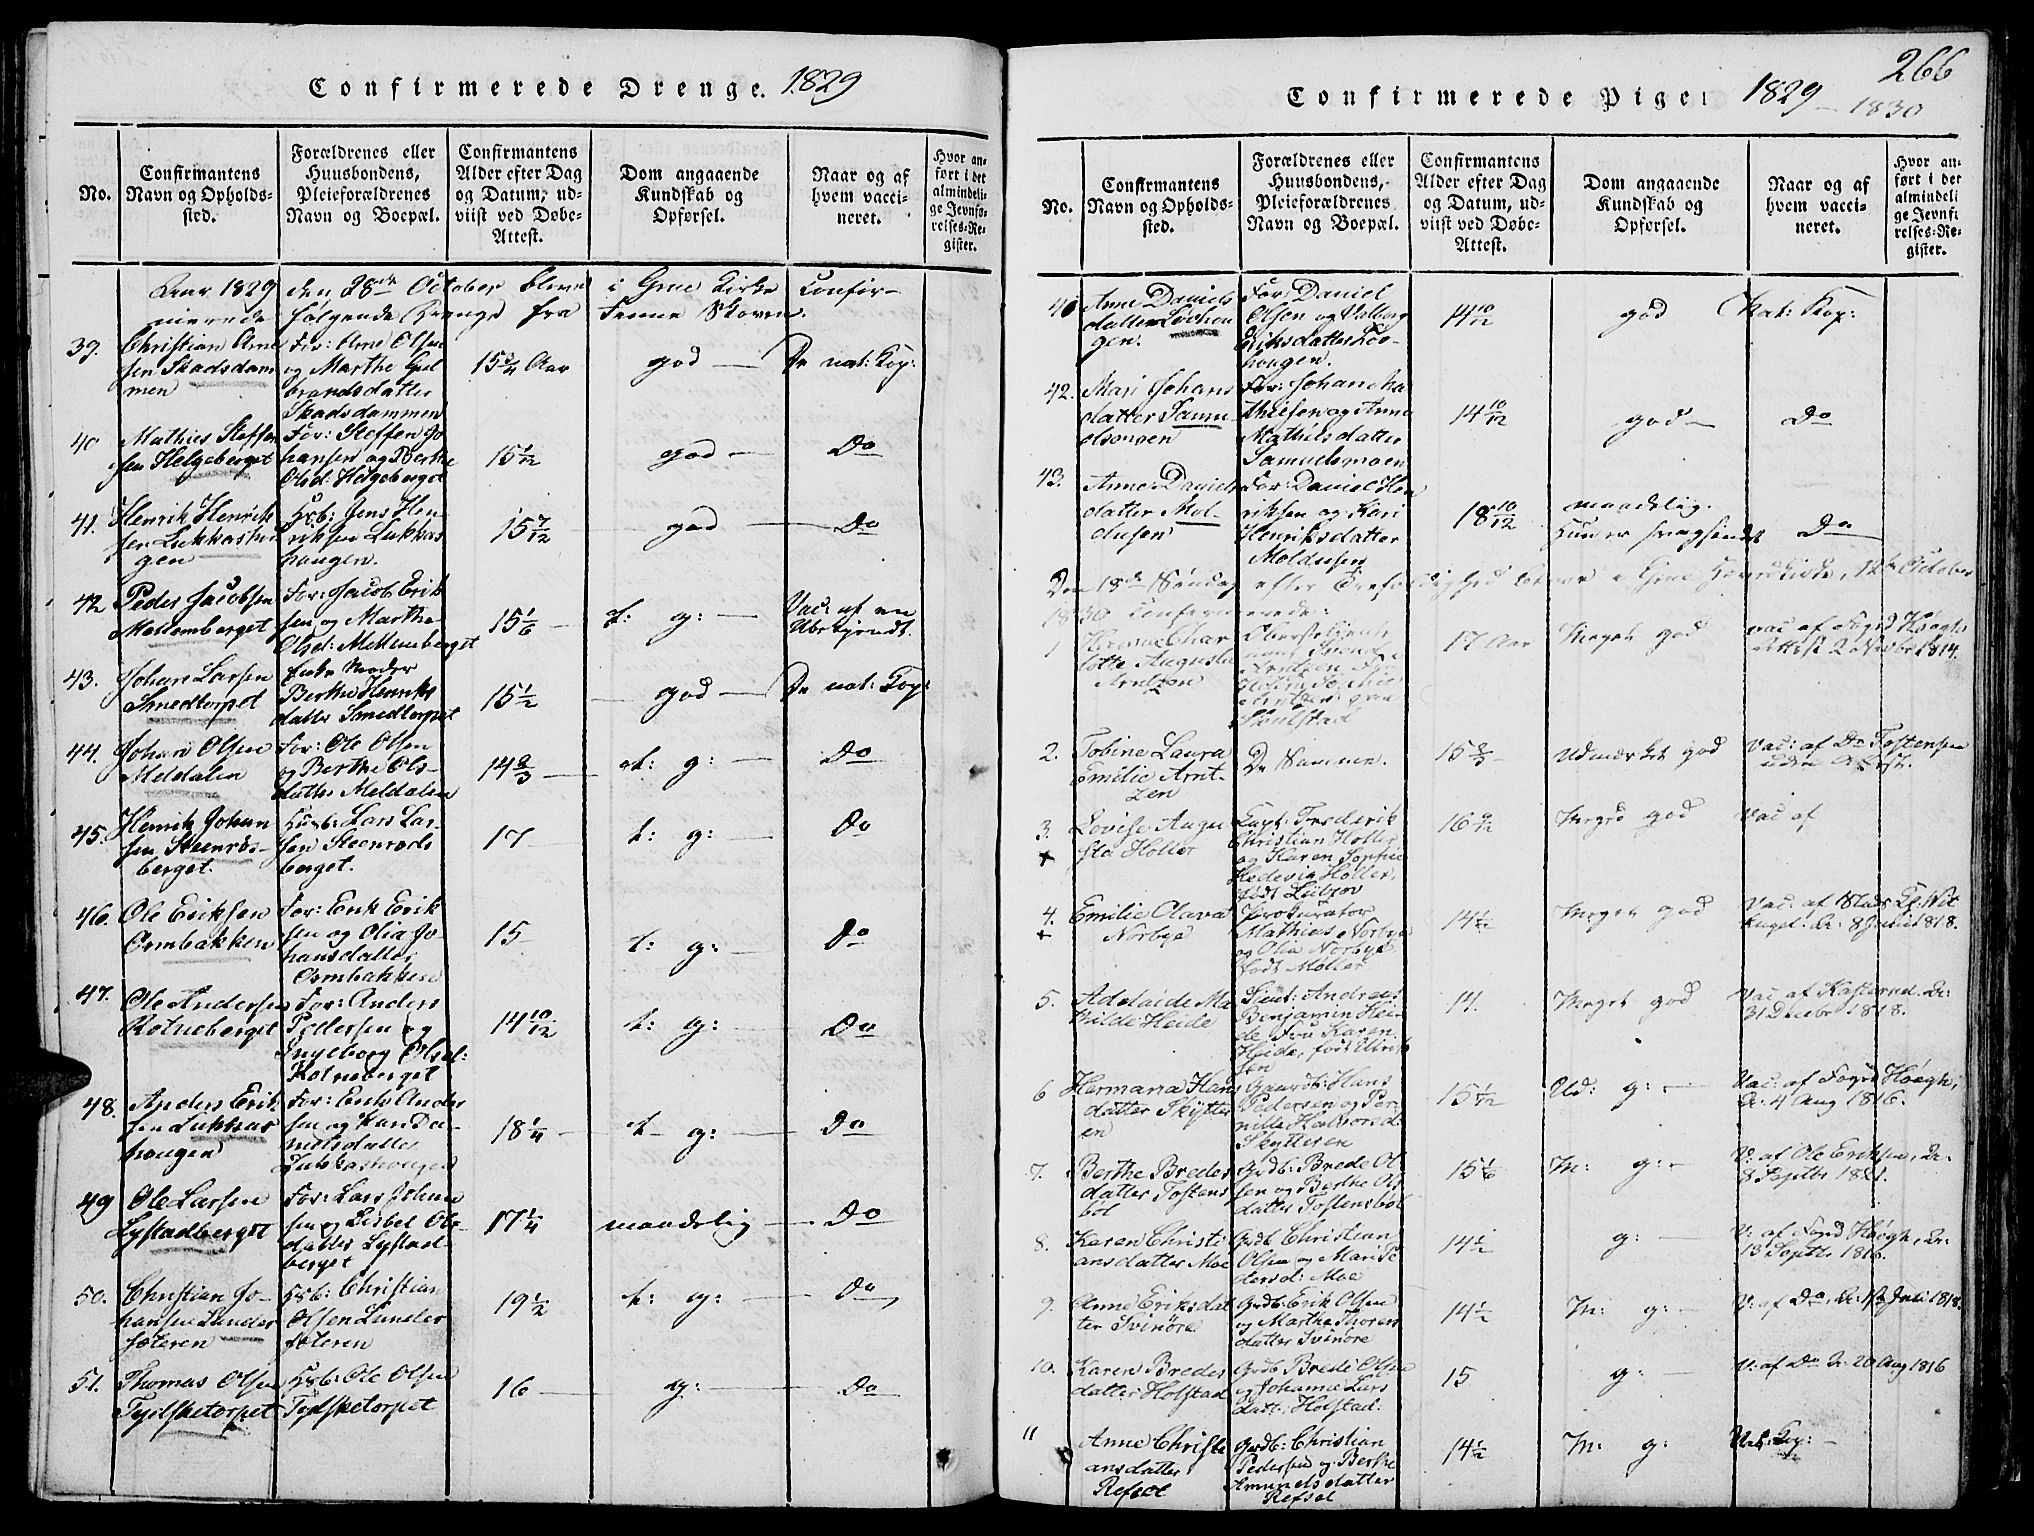 Confirmerede Drenge. 1829
No.
Confirmantens
Navn og Opholds-
sted.
Forældrenes eller
Huusbondens,
Pleieforældrenes
Navn og Boepæl.
Confirmantens
Alder efter Dag
og Datum, ud-
viist ved Døbe-
Attest.
Dom angaaende
Kundskab og
Opførsel.
Naar og af
hvem vacci-
neret.
Hvor an-
ført i det
almindeli-
ge Jevnfø-
relses-Re-
gister.
Aar 1829 den 28de October bleve i Grue Kirke Confir-
merede følgende Drenge fra Finne Skoven.
39. Christian Arne
sen Skadsdam
men
For: Arne Olsen
og Marthe Gul
brandsdatter
Skadsdammen
15 3/4 Aar
god
De nat: Kop:
40 Mathies Steffen
sen Helgeberget
For: Steffen Jo
hansen og Berthe
Olsd: Helgeberget
15 1/12
god
Do
41. Henrik Henrik
sen Lukkashou
gen
Hsb: Jens Hen
riksen Lukkas
hougen.
15 7/12
god
Do
42 Peder Jacobsen
Mollemberget
For: Jacob Erik
sen og Marthe
Olsd: Mellemberget
15 1/6
t: g:
Vac: af en
Ubekjendt.
43. Johan Larsen
Smedtorpet
Enke Moder
Berthe Henriks
datter Smedtorpet
15 1/2
god
De nat: Kop:
44. Johan Olsen
Meldalen
For: Ole Olsen
og Berthe Ols-
datter Meldalen
14 2/3
t: g:
Do
45. Henrik Johan
sen Steenrøs-
berget.
Husb: Lars Lar-
sen Steenrøds
berget.
17
t: g:
Do
46. Ole Eriksen
Ormbakken
For: Erik Erik
sen og Olia Jo-
hansdatter
Ormbakken
15
t: g:
Do
47. Ole Andersen
Rotneberget
For: Anders
Pedersen og
Ingeborg Olsd:
Rotneberget
14 10/12
t: g:
Do
48. Anders Erik
sen Lukkas
hougen
For: Erik Ander
sen og Kari Da-
nielsdatter
Lukkashougen
18 1/4
t g:
Do
49 Ole Larsen
Lystadberget
For: Lars Johan
sen og Lisbet Ols-
datter Lystad-
berget
17 1/4
maadelig
Do
50. Christian Jo-
hansen Lunder
sæteren
Hsb: Christian
Olsen Lunder
sæteren
19 1/2
t: g:
Do
51. Thomas Olsen
Tysketorpet
Hsb: Ole Olsen
Tyskketorpet
16
g:
Do
266
Confirmerede Piger 1829 - 1830
No.
Confirmantens
Navn og Opholds-
sted.
Forældrenes eller
Huusbondens,
Pleieforældrenes
Navn og Boepæl.
Confirmantens
Alder efter Dag
og Datum, ud-
viist ved Døbe-
Attest.
Dom angaaende
Kundskab og
Opførsel.
Naar og af
hvem vacci-
neret.
Hvor an-
ført i det
almindeli
ge Jevnfø
relses-Re-
gister.
Anne Daniels
datter Løvhou
gen.
For: Daniel
Olsen og Valborg
Eriksdatter Løv-
hougen.
14 10/12
god
Nat: Kop:
42. Mari Johans
datter Samu
elsmoen
For: Johan Ma
thiesen og Anne
Mathiesdatter
Samuelsmoen
14 10/12
god
Do
43. Anne Daniels
datter Mol-
dusen
For: Daniel Hen
riksen og Kari
Henriksdatter
Moldusen
18 10/12
maadelig.
Hun er svagsindet
Do
Den 18de Søndag efter Trefoldighed bleve i Grue Hovedkirke, October
1830 confirmerede:
1 Char
lotte Augusta
Arntzen
Arntzen
17 Aar
Meget god
vac af Foged Høegh
Attest 2 1814.
2. Tobine Laura
Emilie Arnt
zen
De Samme.
15 2/3
Udmærket god
Vac: af Dr Tostensen
uden Attest.
3. Lovise Augu
sta Holler
Capt: Frederik
Christian Holler
og Karen Sophie
Hedevig Holler,
født Lützow
16 9/12
Meget god
Vac af
4. Emilie Olava
Norbye
Prokurator
Mathias Norbye
og Olia Norbye
født Møller
14 1/2
Meget god
Vac: af
8 Junii 1818.
5. Adelaide Ma
thilde Heide
Lieut: Andreas
Benjamin Hei-
de, Fru Karen
Heide, født Ulrik
sen
14.
Meget god
Vac af
31 Decbr 1818.
6 Hermana Hans
datter Skytter
en
Gaardb: Hans
Pedersen og Per-
nille Halvorsd:
Skytteren
15 1/12
Ud: g:
Vac: af Foged Høegh,
4 Aug 1816.
7. Berthe Bredes
datter Tostens
bøl
Grdb: Brede Ol
sen og Berthe Ols
datter Tostensbøl
15 1/6
M: g:
V: af Ole Eriksen,
8 Septbr 1821.
8. Karen Christi
ansdatter Moe
Grdb Christian
Olsen og Mari Pe
dersd: Moe
14 1/2
g:
V: af Fogd Høegh,
13 Septbr 1816.
9. Anne Eriksdat
ter Svinøre
Grdb: Erik Olsen
og Marthe Thores
datter Svinøre
14 1/2
M: g:
V: af Do, Juli 1818.
10. Karen Bredes
datter Holstad
Grdb Brede Olsen
og Johanne Lars
datt: Holstad.
15
g:
V: af Do 20 Aug 1816
11 Anne Christi
ansdatter
Refsel
Grdb: Christian
Pedersen og Berthe
Amundsdatter
Refsel
14 1/2
M: g:
Nat: Kop: